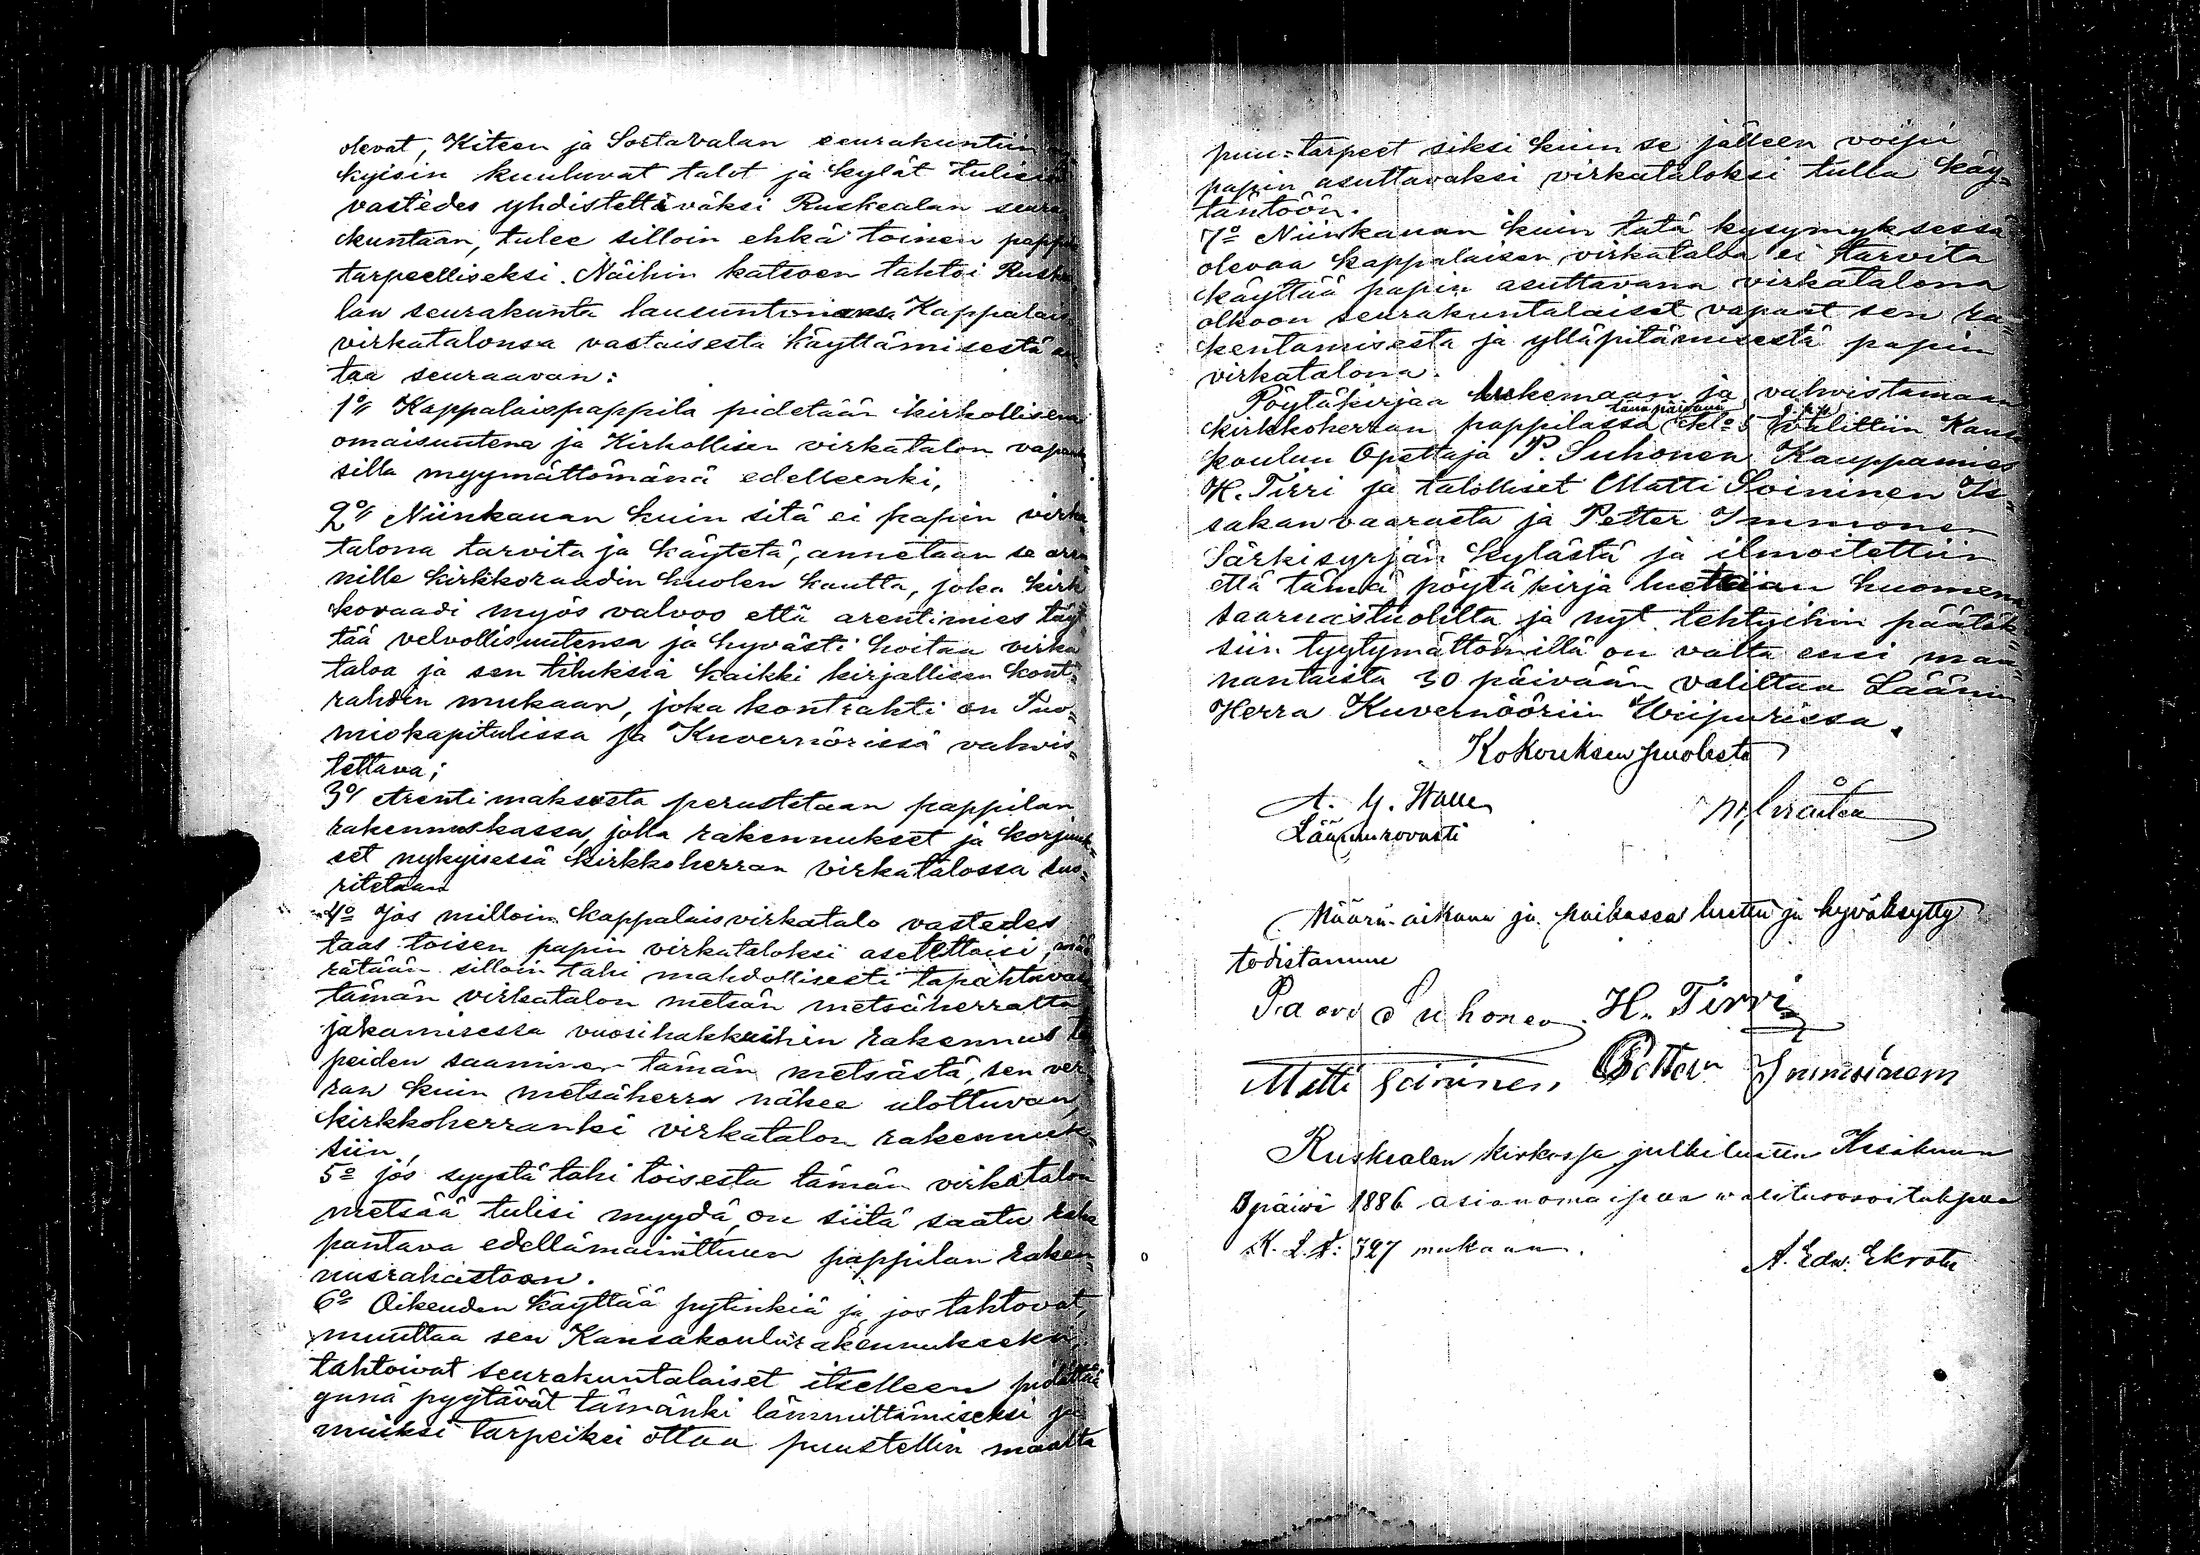 olevat, Kiteen ja Sortavalan seurakuntiin
kyisin kuuluvat talot ja kylät tulisi
vastedes yhdistettäväksi Ruskealan seura
kuntaan, tulee silloin ehkä toinen pappi
tarpeelliseksi. Näihin katsoen tahtoi Ruskea
lan seurakunta lausuntonansa Kappalais
virkatalonsa vastaisesta käyttämisestä an
taa seuraavan:
1o/ Kappalaispappila pidetään kirkollisena
omaisuutena ja Kirkollisen virkatalon vapauk
silla myymättömänä edelleenki,
2o/ Niinkauan kuin sitä ei papin virka
talona tarvita ja käytetä, annetaan se aren
nille kirkkoraadin huolen kautta, joka kirk
koraadi myös valvoo että arentimies täyt
tää velvollisuutensa ja hyvästi hoitaa virka
taloa ja sen tiluksia kaikki kirjallisen kont=
rahdin mukaan, joka kontrahti on Tuo=
miokapitulissa ja Kuvernörissä vahvis=
tettava;
3o/ Arentimaksusta perustetaan pappilan
rakennuskassa, jolla rakennukset ja korjauk=
set nykyisessä kirkkoherran virkatalossa suo=
ritetaan
4o Jos milloin kappalaisvirkatalo vastedes
taas toisen papin virkataloksi asetettaisi, mää
rätään silloin tahi mahdollisesti tapahtuvassa
tämän virkatalon metsän metsäherralta
jakamisessa vuosihakkuihin rakennus tar
peiden saaminen tämän metsästä, sen ver
ran kuin metsäherra näkee ulottuvan,
kirkkoherranki virkatalon rakennuk=
siin,
5o jos syystä tahi toisesta tämän virkatalon
metsää tulisi myydä, on siitä saatu raha
pantava edellämainittuun pappilan raken=
nusrahastoon.
6o Oikeuden käyttää pytinkiä ja, jos tahtovat,
muuttaa sen Kansakoulurakennukseksi,
tahtoivat seurakuntalaiset itselleen pidättää
ynnä pyytävät tämänki lämmittämiseksi ja
muiksi tarpeiksi ottaa puustellin maalta
puu=tarpeet siksi kuin se jälleen voipi
papin asuttavaksi virkataloksi tulla käy=
täntöön.
7o Niinkauan kuin tätä kysymyksessä
olevaa kappalaisen virkataloa ei tarvita
käyttää papin asuttavana virkatalona
olkoon seurakuntalaiset vapaat sen ra=
kentamisesta ja ylläpitämisestä papin
virkatalona.
Pöytäkirjaa lukemaan ja vahvistamaan
tänäpäivänä j.p.p.
kirkkoherran pappilassa klo 5 valittiin Kansa
koulun Opettaja P. Suhonen, Kauppamies
H. Tirri ja talolliset Matti Soininen Is=
sakanvaarasta ja Petter Immonen
Särkisyrjän kylästä ja ilmoitettiin
että tämä pöytäkirja luetaan huomena
saarnastuolilta ja nyt tehtyihin päätök
siin tyytymättömillä on valta ensi maa=
nantaista 30 päivään valittaa Läänin
Herra Kuvernööriin Wiipurissa.
Kokouksen puolesta
A. G. Walle
Lääninrovasti
Määrä-aikana ja paikassa luettu ja hyväksytty
todistamme
Paavo Suhonen. H. Tirri
Matti Soininen, Petter Immoinem
Ruskealan kirkossa julkiluettu Kesäkuun
päivä 1886 asianomaisessa walitusosoituksessa
K. L. §: 327 mukaan.
A. Edw. Ekroth